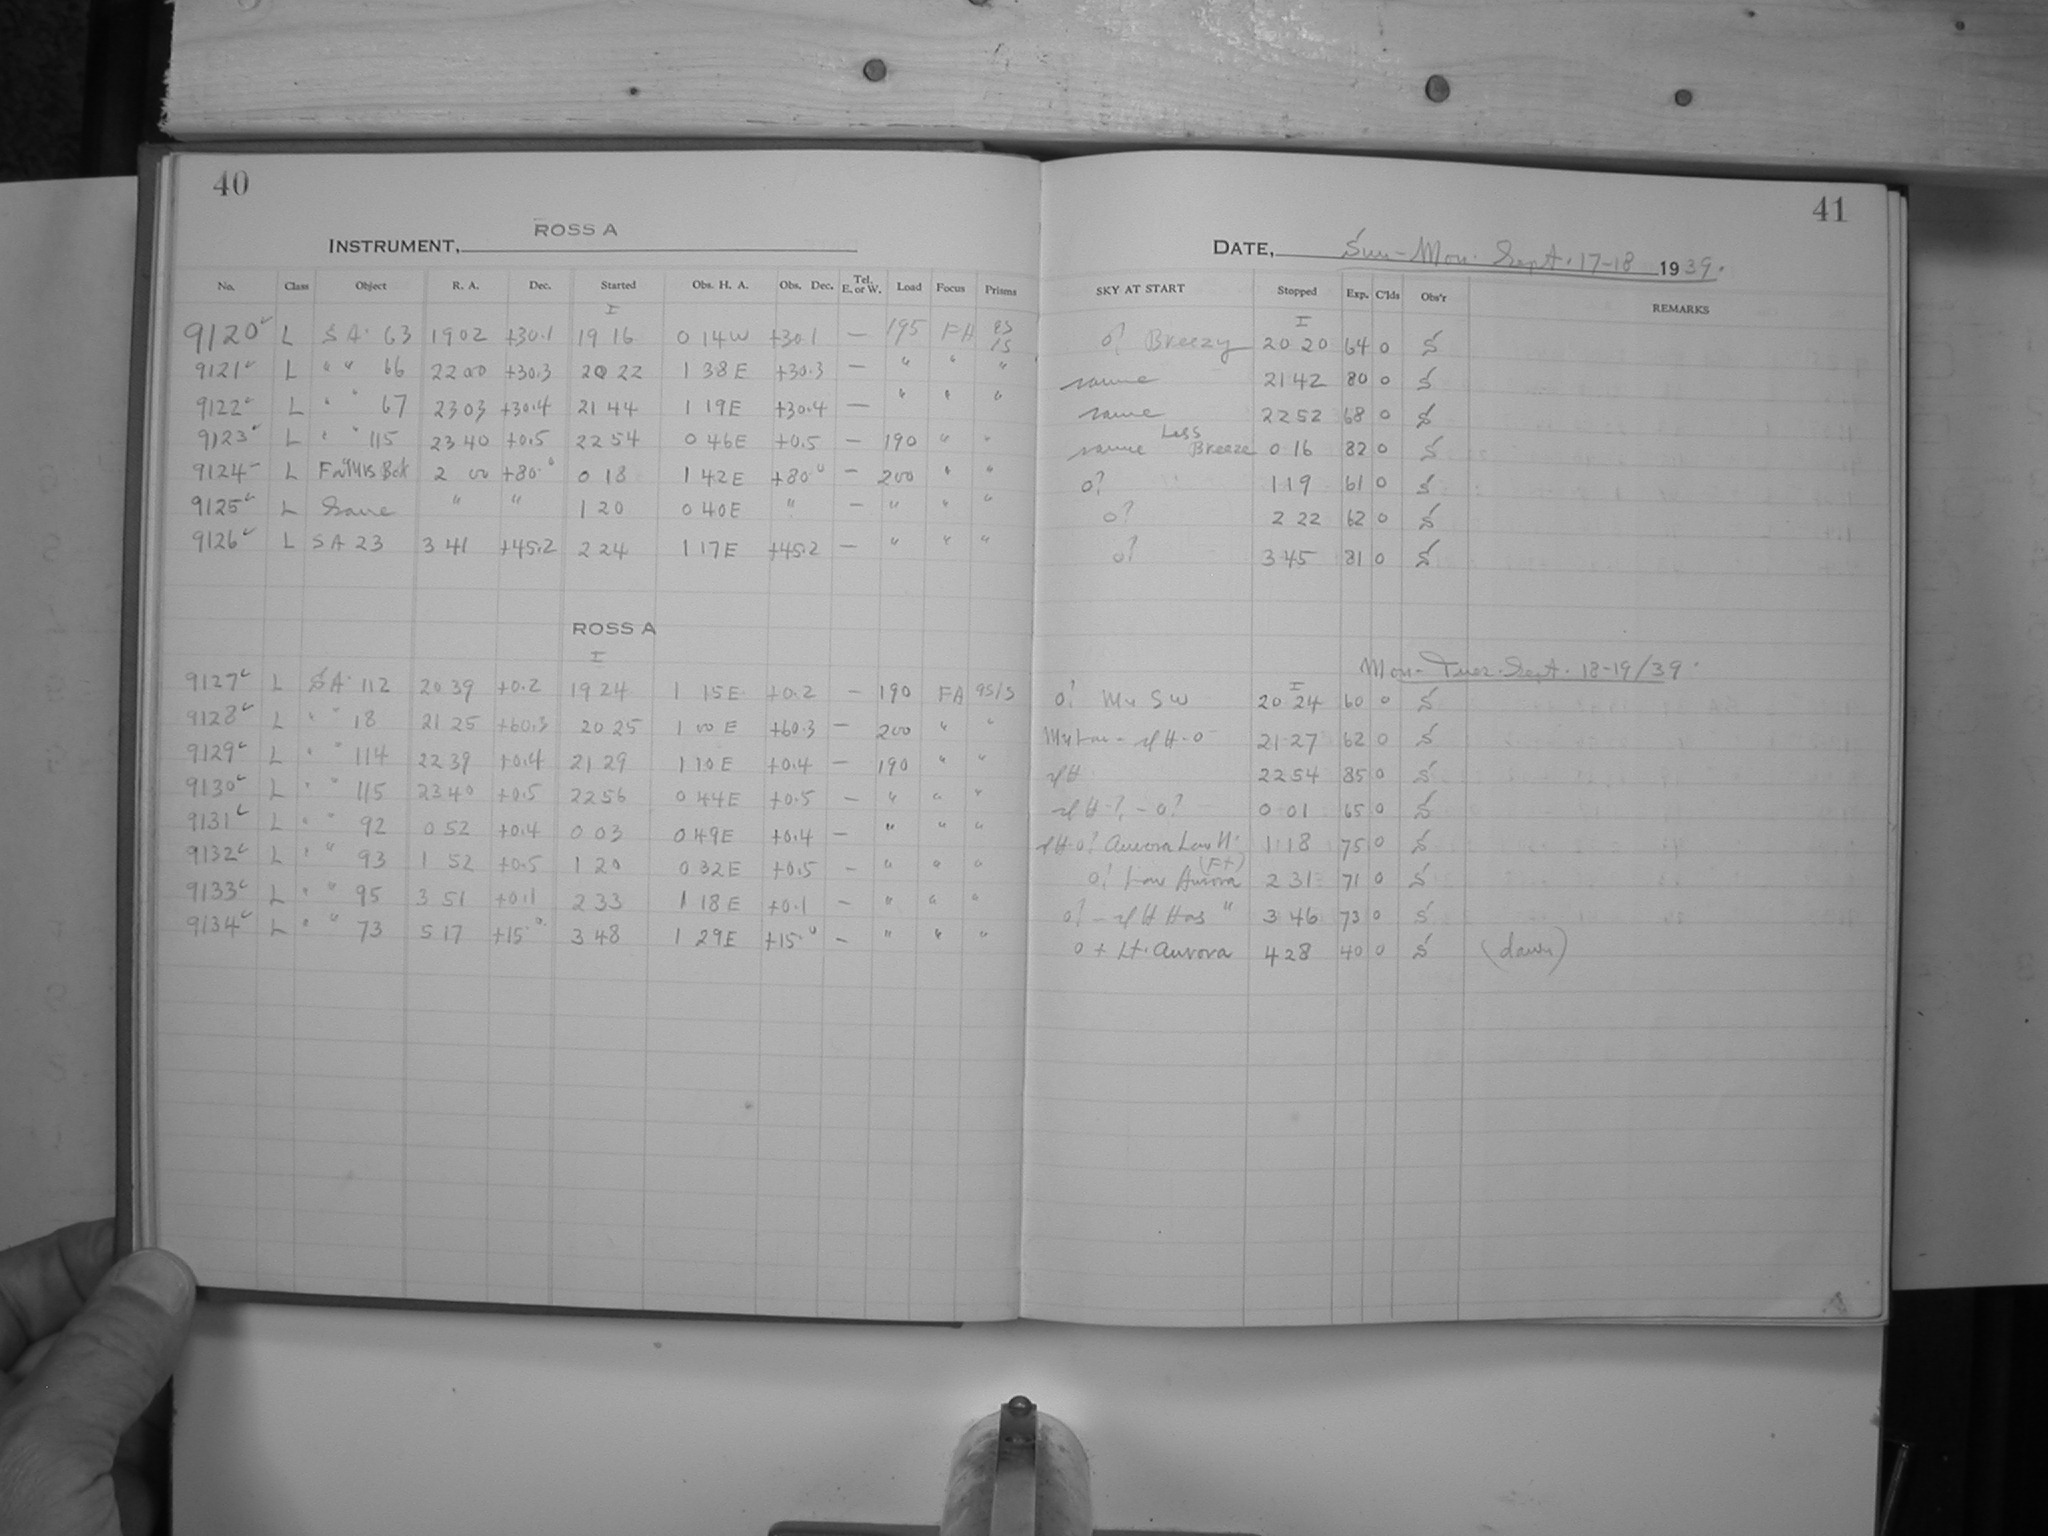 40
ROSS A
INSTRUMENT,
No. Class Object R. A. Dec. Started Obs. H. A. Obs. Dec. Tel. E. or W. Load Focus Prisms
I
9120 L S A 63 19 02 +30.1 19 16 0 14 W +30.1 — 195 FA
9121 L " " 66 22 00 +30.3 20 22 1 38 E +30.3 — " " "
9122 L " " 67 23 03 +30.4 21 44 1 19 E +30.4 — " " "
9123 L " " 115 23 40 +0.5 22 54 0 46 E +0.5 — 190 " "
9124 L 2 00 +80.0 0 18 1 42 E +80.0 — 200 " "
9125 L Same " " 1 20 0 40 E " — " " "
9126 L S A 23 3 41 +45.2 2 24 1 17 E +45.2 — " " "
ROSS A
I
9127 L S A 112 20 39 +0.2 19 24 1 15 E +0.2 — 190 FA
9128 L " " 18 21 25 +60.3 20 25 1 00 E +60.3 — 200 " "
9129 L " " 114 22 39 +0.4 21 29 1 10 E +0.4 — 190 " "
9130 L " " 115 23 40 +0.5 22 56 0 44 E +0.5 — " " "
9131 L " " 92 0 52 +0.4 0 03 0 49 E +0.4 — " " "
9132 L " " 93 1 52 +0.5 1 20 0 32 E +0.5 — " " "
9133 L " " 95 3 51 +0.1 2 33 1 18 E +0.1 — " " "
9134 L " " 73 5 17 +15.0 3 48 1 29 E +15.0 — " " "
41
DATE, Sun-Mon. Sept. 17-18 1939.
SKY AT START Stopped Exp. C'lds Obs'r REMARKS
I
0? Breezy 20 20 64 0 S
same 21 42 80 0 S
same 22 52 68 0 S
same Less Breeze 0 16 82 0 S
0? 1 19 61 0 S
0? 2 22 62 0 S
0? 3 45 81 0 S
Mon-Tues. Sept. 18-19/39.
I
0? SW 20 24 60 0 S
21 27 62 0 S
22 54 85 0 S
0? 0 01 65 0 S
0? Aurora Low N. 1 18 75 0 S
0? Low Aurora 2 31 71 0 S
0? " 3 46 73 0 S
0 + Lt. Aurora 4 28 40 0 S (dawn)